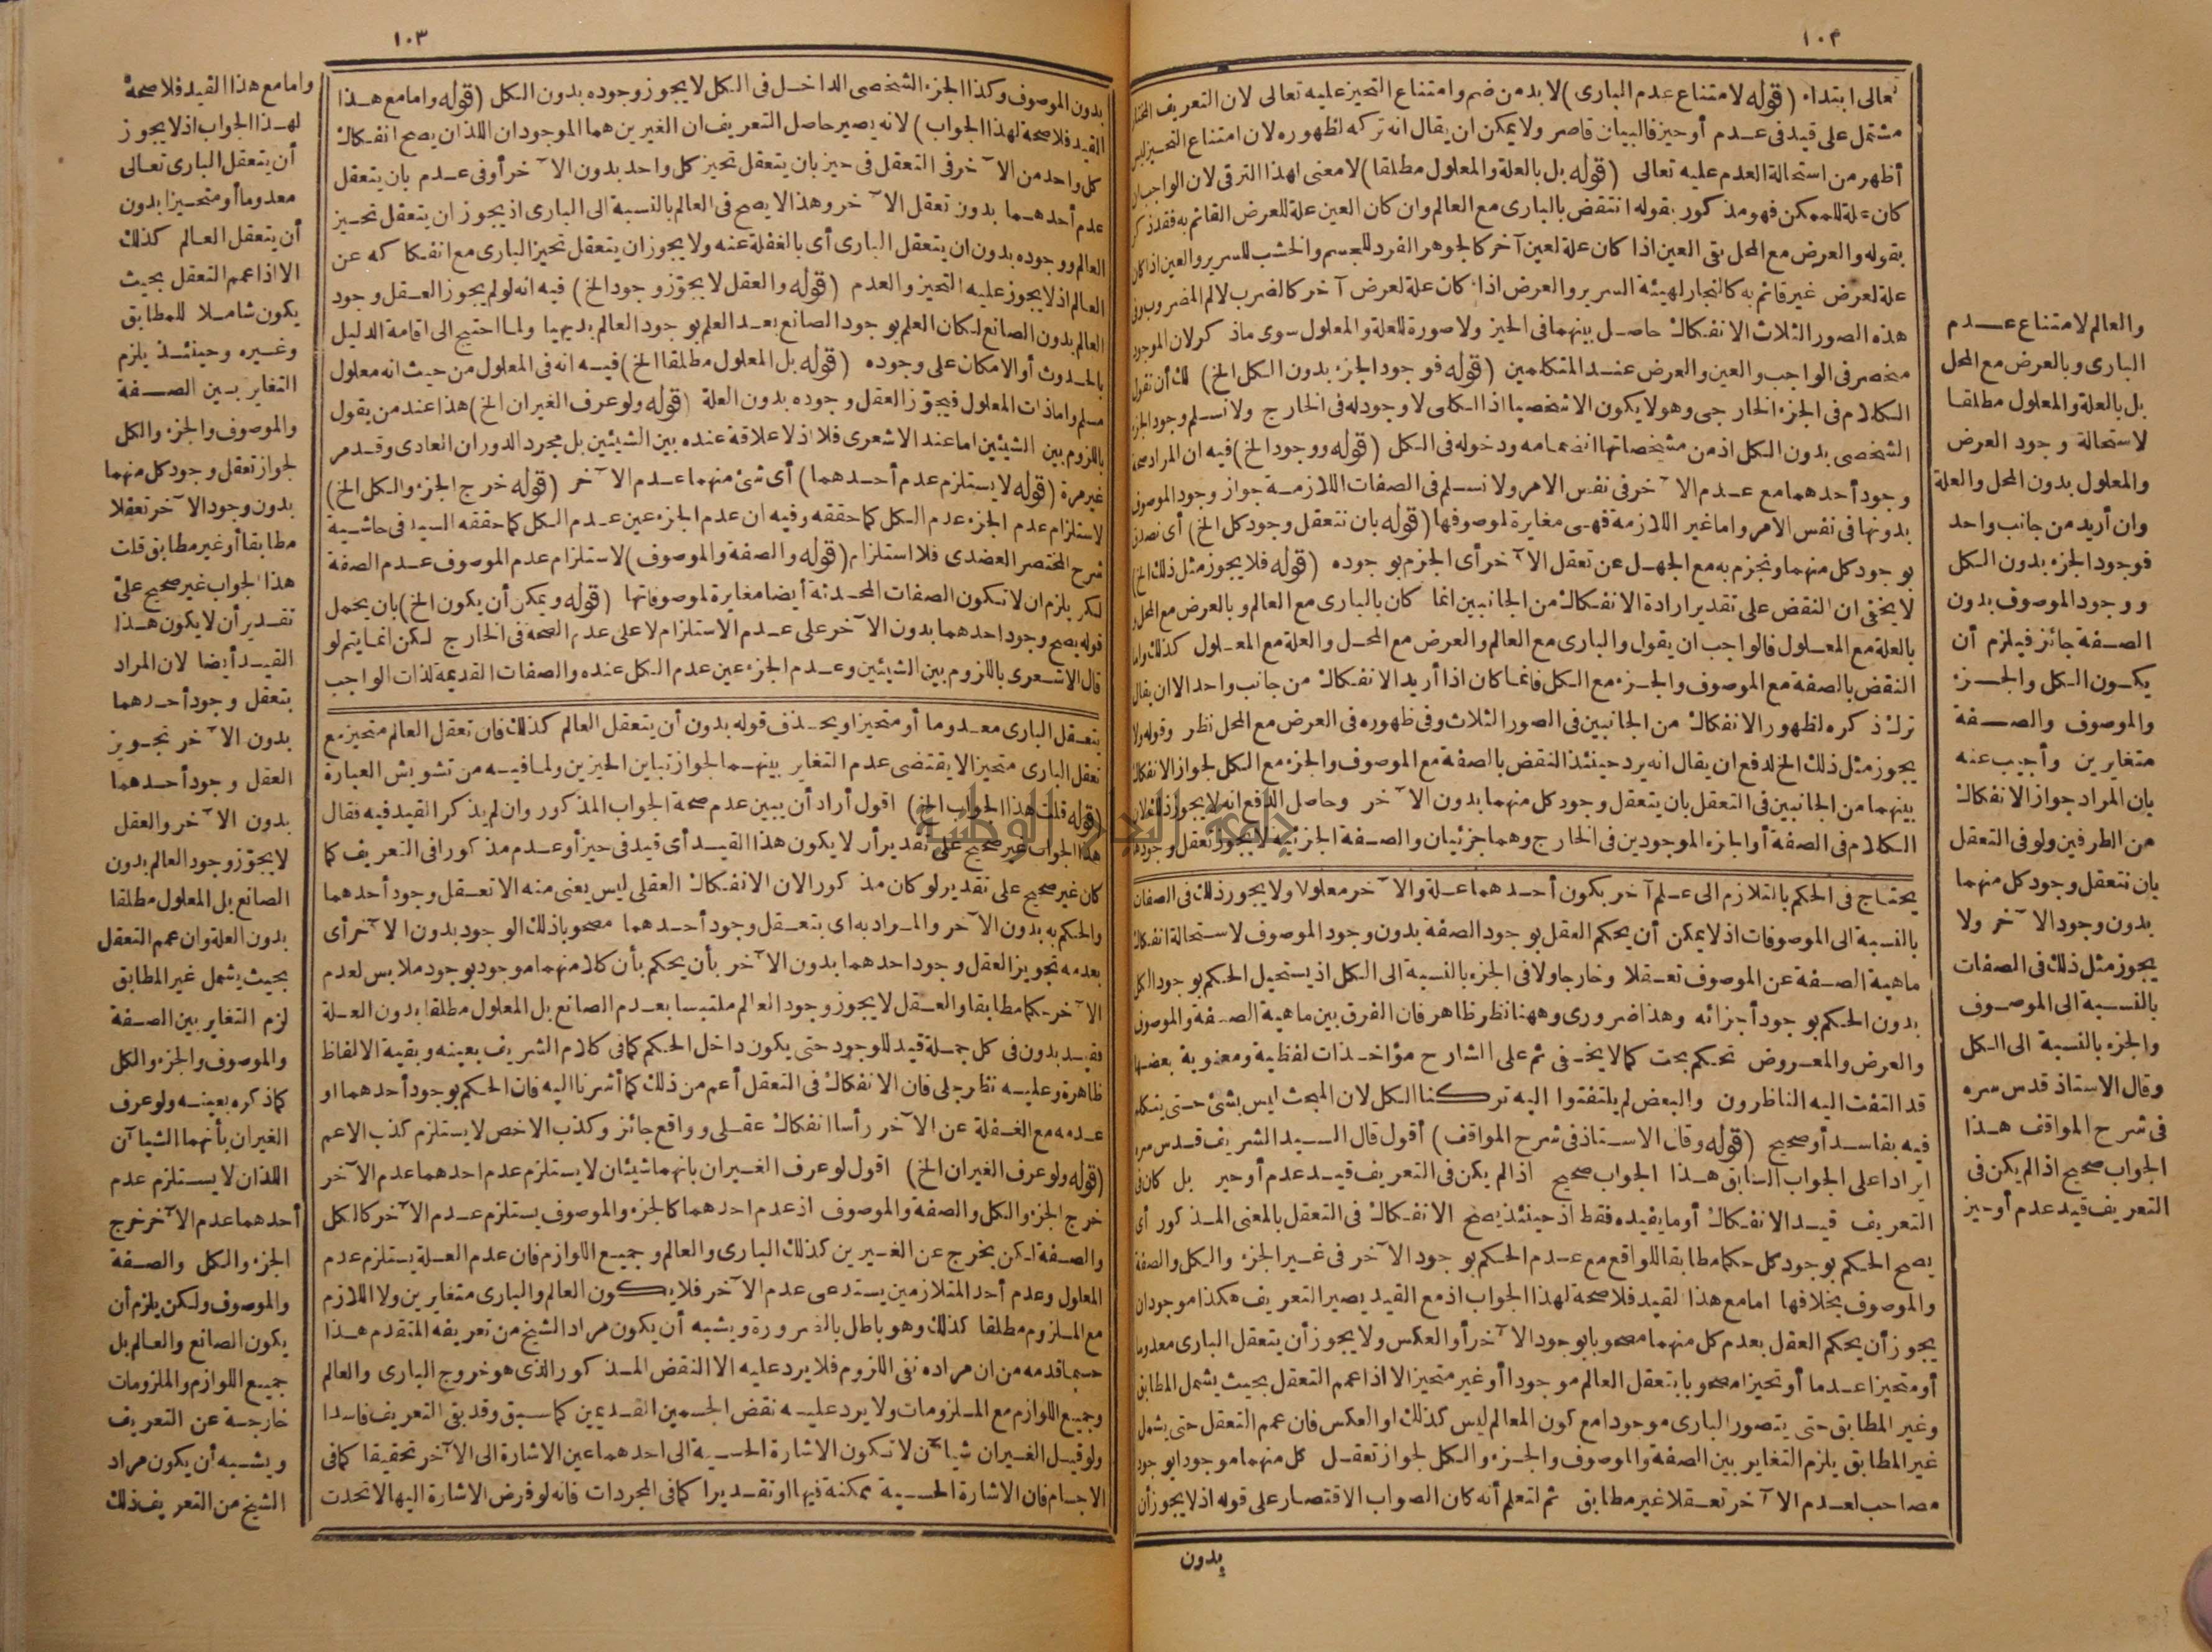 ١٠٢
تعالى ابتداء (قوله لامتناع عدم البارى) لا بد من ضم وامتناع التحيز عليه تعالى لان التعريف
مشتمل على قيد فى عدم أو حيز فالبيان قاصر ولا يمكن ان يقال انه تركه لظهوره لان امتناع التحيز ليس
أظهر من استحالة العدم عليه تعالى (قوله بل بالعلة والمعلول مطلقا) لا معنى لهذا الترقى لان الواجب ان
كان علة للممكن فهو مذكور بقوله انتقض بالبارى مع العالم وان كان العين علة للعرض القائم به فقد ذكر
بقوله والعرض مع المحل بقى العين اذا كان علة لعين آخر كالجوهر الفرد للجسم والخشب للسرير والعين اذا كان
علة لعرض غير قائم به كالنجار لهيئة السرير والعرض اذا كان علة لعرض آخر كالضرب لالم المضروب وفى
هذه الصور الثلاث الانفكاك حاصل بينهما فى الحيز ولا صورة للعلة والمعلول سوى ماذكر لان الموجود
منحصر فى الواجب والعين والعرض عند المتكلمين (قوله فوجود الجزء بدون الكل الخ) لك أن تقول
الكلام فى الجزء الخارجى وهو لا يكون الا شخصيا اذ الكلى لا وجود له فى الخارج ولا نسلم وجود الجزء
الشخصى بدون الكل اذ من مشخصاتها انضمامه ودخوله فى الكل (قوله ووجود الخ) فيه ان المراد صحة
وجود أحدهما مع عدم الآخر فى نفس الامر ولا نسلم فى الصفات اللازمة جواز وجود الموصوف
بدونها فى نفس الامر واما غير اللازمة فهى مغايرة لموصوفها (قوله بان نتعقل وجود كل الخ) أى نصدق
بوجود كل منهما ونجزم به مع الجهل عن تعقل الآخر أى الجزم بوجوده (قوله فلا يجوز مثل ذلك الخ)
لا يخفى ان النقض على تقدير ارادة الانفكاك من الجانبين انما كان بالبارى مع العالم وبالعرض مع المحل و
بالعلة مع المعلول فالواجب ان يقول والبارى مع العالم والعرض مع المحل والعلة مع المعلول كذلك واما
النقض بالصفة مع الموصوف والجزء مع الكل فانما كان اذا أريد الانفكاك من جانب واحد الا ان يقال
ترك ذكره لظهور الانفكاك من الجانبين فى الصور الثلاث وفى ظهوره فى العرض مع المحل نظر وقوله ولا
يجوز مثل ذلك الخ لدفع ان يقال انه يرد حينئذ النقض بالصفة مع الموصوف والجزء مع الكل لجواز الانفكاك
بينهما من الجانبين فى التعقل بان يتعقل وجود كل منهما بدون الآخر وحاصل الدافع انه لا يجوز ذلك لان
الكلام فى الصفة أو الجزء الموجودين فى الخارج وهما جزئيان والصفة الجزئية لا يجوز تعقل وجودها
يحتاج فى الحكم بالتلازم الى علم آخر بكون أحدهما علة والآخر معلولا ولا يجوز ذلك فى الصفات
بالنسبة الى الموصوفات اذ لا يمكن أن يحكم العقل بوجود الصفة بدون وجود الموصوف لاستحالة انفكاك
ماهية الصفة عن الموصوف تعقلا وخارجا ولا فى الجزء بالنسبة الى الكل اذ يستحيل الحكم بوجود الكل
بدون الحكم بوجود أجزائه وهذا ضرورى وههنا نظر ظاهر فان الفرق بين ماهية الصفة والموصوف
والعرض والمعروض تحكم بحت كما لا يخفى ثم على الشارح مؤاخذات لفظية ومعنوية بعضها
قد التفت اليه الناظرون والبعض لم يلتفتوا اليه تركنا الكل لان المبحث ليس بشئ حتى يتكلم
فيه بفاسد أو صحيح (قوله وقال الاستاذ فى شرح المواقف) أقول قال السيد الشريف قدس سره
ايرادا على الجواب السابق هذا الجواب صحيح اذا لم يكن فى التعريف قيد عدم أو حيز بل كان فى
التعريف قيد الانفكاك أو ما يفيده فقط اذ حينئذ يصح الانفكاك فى التعقل بالمعنى المذكور أى
يصح الحكم بوجود كل حكما مطابقا للواقع مع عدم الحكم بوجود الآخر فى غير الجزء والكل والصفة
والموصوف بخلافها امامع هذا القيد فلا صحة لهذا الجواب اذ مع القيد يصير التعريف هكذا موجودان
يجوز أن يحكم العقل بعدم كل منهما مصحوبا بوجود الآخر أو العكس ولا يجوز أن يتعقل البارى معدوما
أو متحيزا عدما أو تحيزا مصحوبا بتعقل العالم موجودا أو غير متحيز الا اذا عمم التعقل بحيث يشمل المطابق
وغير المطابق حتى يتصور البارى موجودا مع كون العالم ليس كذلك او العكس فان عمم التعقل حتى يشمل
غير المطابق يلزم التغاير بين الصفة والموصوف والجزء والكل لجواز تعقل كل منهما موجودا بوجود
مصاحب لعدم الآخر تعقلا غير مطابق ثم لتعلم أنه كان الصواب الاقتصار على قوله اذ لا يجوز أن
بدون
والعالم لامتناع عدم
البارى وبالعرض مع المحل
بل بالعلة والمعلول مطلقا
لاستحالة وجود العرض
والمعلول بدون المحل والعلة
وان أريد من جانب واحد
فوجود الجزء بدون الكل
ووجود الموصوف بدون
الصفة جائز فيلزم أن
يكون الكل والجزء
والموصوف والصفة
متغايرين وأجيب عنه
بان المراد جواز الانفكاك
من الطرفين ولو فى التعقل
بان نتعقل وجود كل منهما
بدون وجود الآخر ولا
يجوز مثل ذلك فى الصفات
بالنسبة الى الموصوف
والجزء بالنسبة الى الكل
وقال الاستاذ قدس سره
فى شرح المواقف هذا
الجواب صحيح اذا لم يكن فى
التعريف قيد عدم أو حيز
١٠٣
بدون الموصوف وكذا الجزء الشخصى الداخل فى الكل لا يجوز وجوده بدون الكل (قوله وامامع هذا
القيد فلا صحة لهذا الجواب) لانه يصير حاصل التعريف ان الغيرين هما الموجودان اللذان يصح انفكاك
كل واحد من الآخر فى التعقل فى حيز بان يتعقل تحيز كل واحد بدون الآخر أو فى عدم بان يتعقل
عدم أحدهما بدون تعقل الآخر وهذا لا يصح فى العالم بالنسبة الى البارى اذ يجوز ان يتعقل تحيز
العالم ووجوده بدون ان يتعقل البارى أى بالغفلة عنه ولا يجوز ان يتعقل تحيز البارى مع انفكاكه عن
العالم اذ لا يجوز عليه التحيز والعدم (قوله والعقل لا يجوّز وجود الخ) فيه انه لو لم يجوز العقل وجود
العالم بدون الصانع لكان العلم بوجود الصانع بعد العلم بوجود العالم بديهيا ولما احتيج الى اقامة الدليل
بالحدوث أو الامكان على وجوده (قوله بل المعلول مطلقا الخ) فيه انه فى المعلول من حيث انه معلول
مسلم واما ذات المعلول فيجوّز العقل وجوده بدون العلة (قوله ولو عرف الغيران الخ) هذا عند من يقول
باللزوم بين الشيئين اما عند الاشعرى فلا اذ لا علاقة عنده بين الشيئين بل مجرد الدوران العادى وقد مر
غير مرة (قوله لا يستلزم عدم أحدهما) أى شئ منهما عدم الآخر (قوله خرج الجزء والكل الخ)
لاستلزام عدم الجزء عدم الكل كما حققه وفيه ان عدم الجزء عين عدم الكل كما حققه السيد فى حاشية
شرح المختصر العضدى فلا استلزام (قوله والصفة والموصوف) لاستلزام عدم الموصوف عدم الصفة
لكن يلزم ان لا تكون الصفات المحدثة أيضا مغايرة لموصوفاتها (قوله ويمكن أن يكون الخ) بان يحمل
قوله يصح وجود احدهما بدون الآخر على عدم الاستلزام لا على عدم الصحة فى الخارج لكن انما يتم لو
قال الاشعرى باللزوم بين الشيئين وعدم الجزء عين عدم الكل عنده والصفات القديمة لذات الواجب
يتعقل البارى معدوما أو متحيزا وبحذف قوله بدون أن يتعقل العالم كذلك فان تعقل العالم متحيز مع
تعقل البارى متحيزا لا يقتضى عدم التغاير بينهما لجواز تباين الحيزين ولما فيه من تشويش العبارة
(قوله قلت هذا الجواب الخ) اقول أراد أن يبين عدم صحة الجواب المذكور وان لم يذكر القيد فيه فقال
هذا الجواب غير صحيح على تقدير أن لا يكون هذا القيد أى قيد فى حيز أو عدم مذكورا فى التعريف كما
كان غير صحيح على تقدير لو كان مذكورا لان الانفكاك العقلى ليس يعنى منه الا تعقل وجود أحدهما
والحكم به بدون الآخر والمراد به اى بتعقل وجود أحدهما مصحوبا ذلك الوجود بدون الآخر أى
بعدمه تجويز العقل وجود احدهما بدون الآخر بأن يحكم بأن كلا منهما موجود بوجود ملابس لعدم
الآخر حكما مطابقا والعقل لا يجوز وجود العالم ملتبسا بعدم الصانع بل المعلول مطلقا بدون العلة
فقيد بدون فى كل جملة قيد للوجود حتى يكون داخل الحكم كما فى كلام الشريف بعينه وبقية الالفاظ
ظاهرة وعليه نظر جلى فان الانفكاك فى التعقل أعم من ذلك كما أشرنا اليه فان الحكم بوجود أحدهما او
عدمه مع الغفلة عن الآخر رأسا انفكاك عقلى وواقع جائز وكذب الاخص لا يستلزم كذب الاعم
(قوله ولو عرف الغيران الخ) اقول لو عرف الغيران بانهما شيئان لا يستلزم عدم احدهما عدم الآخر
خرج الجزء والكل والصفة والموصوف اذ عدم احدهما كالجزء والموصوف يستلزم عدم الآخر كالكل
والصفة لكن يخرج عن الغيرين كذلك البارى والعالم وجميع اللوازم فان عدم العلة يستلزم عدم
المعلول وعدم أحد المتلازمين يستدعى عدم الآخر فلا يكون العالم والبارى متغايرين ولا اللازم
مع الملزوم مطلقا كذلك وهو باطل بالضرورة ويشبه أن يكون مراد الشيخ من تعريفه المتقدم هذا
حسبما قدمه من ان مراده نفى اللزوم فلا يرد عليه الا النقض المذكور الذى هو خروج البارى والعالم
وجميع اللوازم مع الملزومات ولا يرد عليه نقض الجسمين القديمين كما سبق وقد بقى التعريف فاسدا
ولو قيل الغيران شيآن لا تكون الاشارة الحسية الى احدهما عين الاشارة الى الآخر تحقيقا كما فى
الاجسام فان الاشارة الحسية ممكنة فيها او تقديرا كما فى المجردات فانه لو فرض الاشارة اليها لاتحدت
وامامع هذا القيد فلا صحة
لهذا الجواب اذ لا يجوز
أن يتعقل البارى تعالى
معدوما أو متحيزا بدون
أن يتعقل العالم كذلك
الا اذا عمم التعقل بحيث
يكون شاملا للمطابق
وغيره وحينئذ يلزم
التغاير بين الصفة
والموصوف والجزء والكل
لجواز تعقل وجود كل منهما
بدون وجود الآخر تعقلا
مطابقا أو غير مطابق قلت
هذا الجواب غير صحيح على
تقدير أن لا يكون هذا
القيد أيضا لان المراد
بتعقل وجود أحدهما
بدون الآخر تجويز
العقل وجود أحدهما
بدون الآخر والعقل
لا يجوّز وجود العالم بدون
الصانع بل المعلول مطلقا
بدون العلة وان عمم التعقل
بحيث يشمل غير المطابق
لزم التغاير بين الصفة
والموصوف والجزء والكل
كما ذكره بعينه ولو عرف
الغيران بأنهما الشيآن
اللذان لا يستلزم عدم
أحدهما عدم الآخر خرج
الجزء والكل والصفة
والموصوف ولكن يلزم أن
يكون الصانع والعالم بل
جميع اللوازم والملزومات
خارجة عن التعريف
ويشبه أن يكون مراد
الشيخ من التعريف ذلك
جامعة النجاح الوطنية